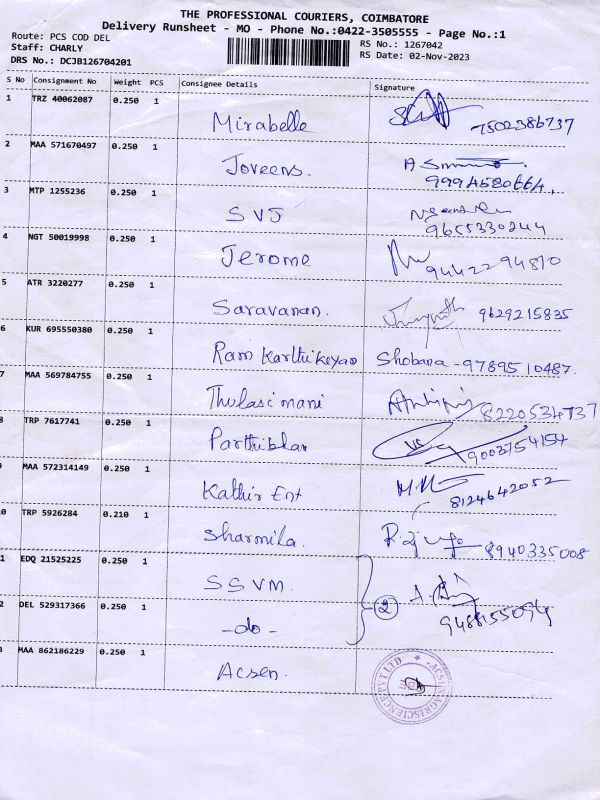 THE PROFESSIONAL COURIERS, COIMBATORE
Delivery Runsheet - MO - Phone No.:0422-3505555 - Page No.:1
Route: PCS COD DEL
Staff: CHARLY
DRS No.: DCJB126704201
RS No.: 1267042
RS Date: 02-Nov-2023
S No Consignment No Weight PCS Consignee Details Signature
1 TRZ 40062087 0.250 1 Mirabelle 7502386737
2 MAA 571670497 0.250 1 Joveens.
9994580664.
3 MTP 1255236 0.250 1 SVJ
9655330244
4 NGT 50019998 0.250 1 Jerome 9442294810
5 ATR 3220277 0.250 1 Saravanan. 9629215835
6 KUR 695550380 0.250 1 Ram Karthikeyan Shobana - 9789510487.
7 MAA 569784755 0.250 1 Thulasimani 8220534737
8 TRP 7617741 0.250 1 Parthibhan VS 9003754154
9 MAA 572314149 0.250 1 Kathir Ent 8124642052
0 TRP 5926284 0.210 1 Sharmila. 8940335008
1 EDQ 21525225 0.250 1 SSVM.
2 DEL 529317366 0.250 1 -do- 2
3 MAA 862186229 0.250 1 Acsen.